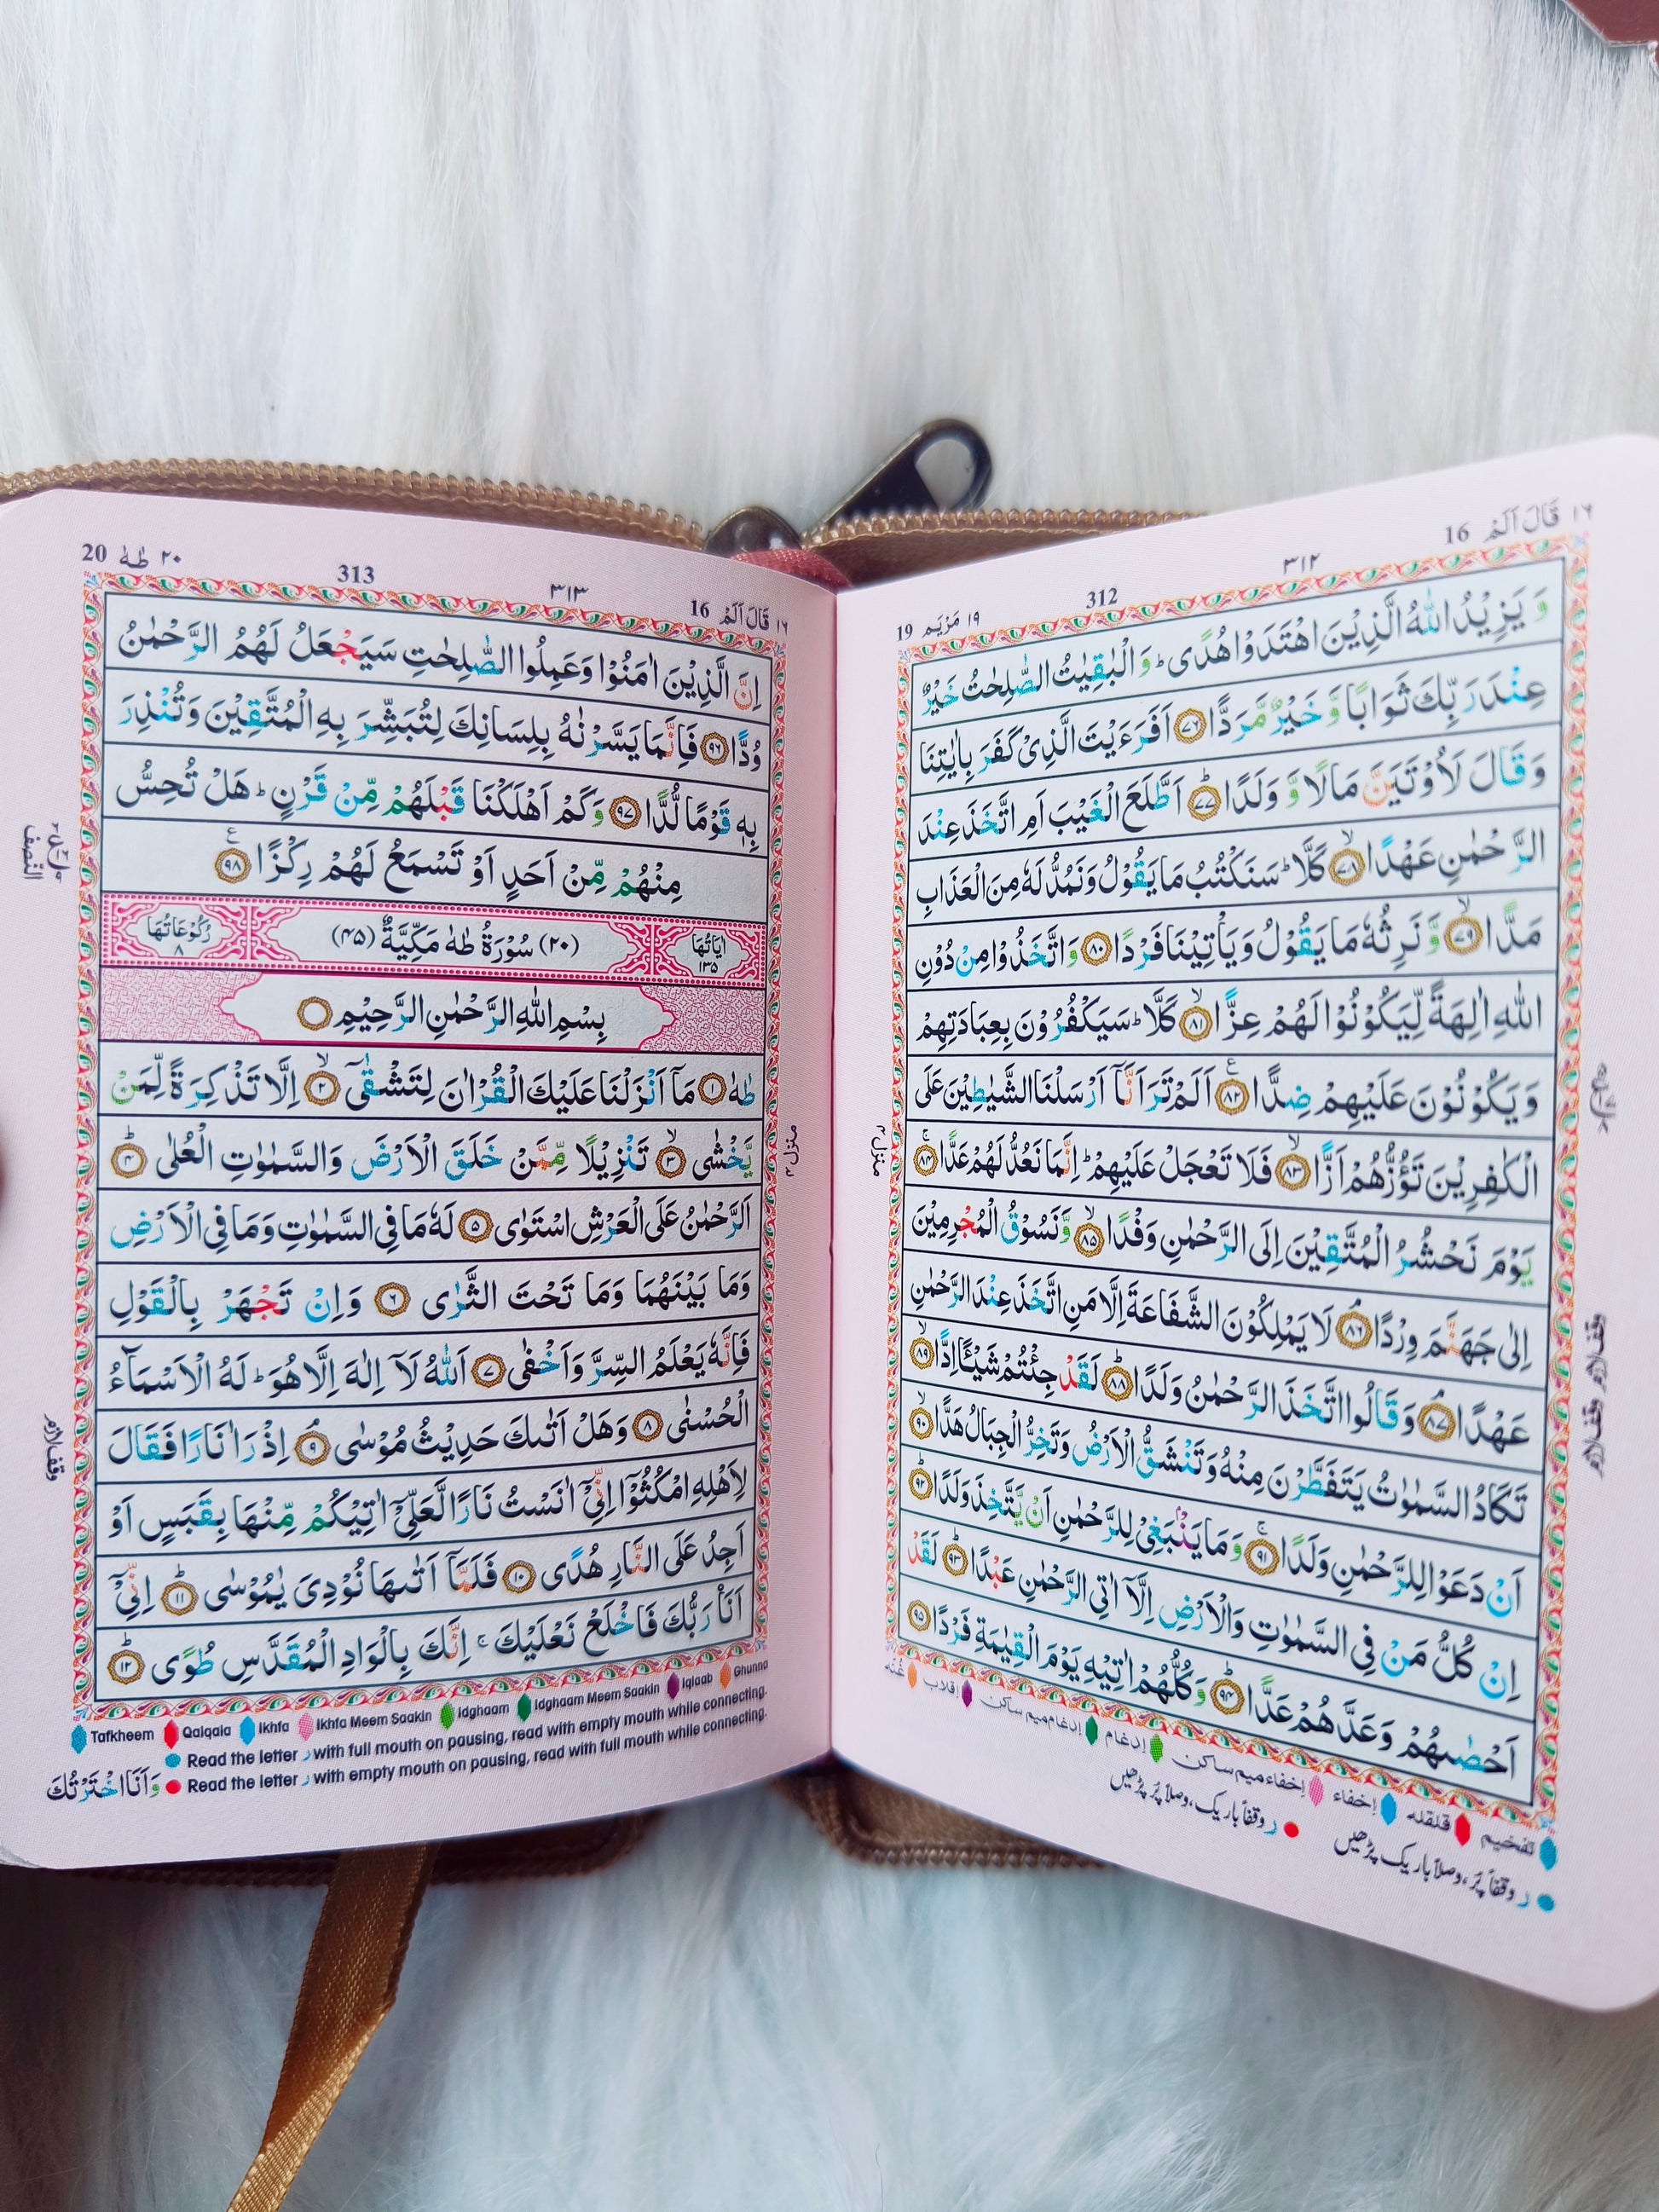 ١٦ قَالَ اَلَمْ 16
٣١٢
312
١٩ مَرْيَم 19
وَيَزِيْدُ اللّٰهُ الَّذِيْنَ اهْتَدَوْا هُدًى ؕ وَالْبٰقِيٰتُ الصّٰلِحٰتُ خَيْرٌ
عِنْدَ رَبِّكَ ثَوَابًا وَّخَيْرٌ مَّرَدًّا ۝٧٦ اَفَرَءَيْتَ الَّذِىْ كَفَرَ بِاٰيٰتِنَا
وَقَالَ لَاُوْتَيَنَّ مَالًا وَّوَلَدًا ؕ۝٧٧ اَطَّلَعَ الْغَيْبَ اَمِ اتَّخَذَ عِنْدَ
الرَّحْمٰنِ عَهْدًا ۙ۝٧٨ كَلَّا ؕ سَنَكْتُبُ مَا يَقُوْلُ وَنَمُدُّ لَهٗ مِنَ الْعَذَابِ
مَدًّا ۙ۝٧٩ وَّنَرِثُهٗ مَا يَقُوْلُ وَيَاْتِيْنَا فَرْدًا ۝٨٠ وَاتَّخَذُوْا مِنْ دُوْنِ
اللّٰهِ اٰلِهَةً لِّيَكُوْنُوْا لَهُمْ عِزًّا ۙ۝٨١ كَلَّا ؕ سَيَكْفُرُوْنَ بِعِبَادَتِهِمْ
وَيَكُوْنُوْنَ عَلَيْهِمْ ضِدًّا ۝٨٢ ع اَلَمْ تَرَ اَنَّاۤ اَرْسَلْنَا الشَّيٰطِيْنَ عَلَى
الْكٰفِرِيْنَ تَؤُزُّهُمْ اَزًّا ۙ۝٨٣ فَلَا تَعْجَلْ عَلَيْهِمْ ؕ اِنَّمَا نَعُدُّ لَهُمْ عَدًّا ۚ۝٨٤
يَوْمَ نَحْشُرُ الْمُتَّقِيْنَ اِلَى الرَّحْمٰنِ وَفْدًا ۙ۝٨٥ وَّنَسُوْقُ الْمُجْرِمِيْنَ
اِلٰى جَهَنَّمَ وِرْدًا ۘ۝٨٦ لَا يَمْلِكُوْنَ الشَّفَاعَةَ اِلَّا مَنِ اتَّخَذَ عِنْدَ الرَّحْمٰنِ
عَهْدًا ۘ۝٨٧ وَقَالُوا اتَّخَذَ الرَّحْمٰنُ وَلَدًا ؕ۝٨٨ لَقَدْ جِئْتُمْ شَيْـًٔا اِدًّا ۙ۝٨٩
تَكَادُ السَّمٰوٰتُ يَتَفَطَّرْنَ مِنْهُ وَتَنْشَقُّ الْاَرْضُ وَتَخِرُّ الْجِبَالُ هَدًّا ۙ۝٩٠
اَنْ دَعَوْا لِلرَّحْمٰنِ وَلَدًا ۚ۝٩١ وَمَا يَنْۢبَغِىْ لِلرَّحْمٰنِ اَنْ يَّتَّخِذَ وَلَدًا ؕ۝٩٢
اِنْ كُلُّ مَنْ فِى السَّمٰوٰتِ وَالْاَرْضِ اِلَّاۤ اٰتِى الرَّحْمٰنِ عَبْدًا ؕ۝٩٣ لَقَدْ
اَحْصٰىهُمْ وَعَدَّهُمْ عَدًّا ؕ۝٩٤ وَكُلُّهُمْ اٰتِيْهِ يَوْمَ الْقِيٰمَةِ فَرْدًا ۝٩٥
منزل ٤
وقف لازم وقف لازم
تفخیم قلقله إخفاء إخفاء میم ساکن إدغام إدغام میم ساکن إقلاب غنه
ر وقفاً پُر، وصلاً باریک پڑھیں ر وقفاً باریک، وصلاً پُر پڑھیں
١٦ قَالَ اَلَمْ 16
٣١٣
313
٢٠ طٰهٰ 20
اِنَّ الَّذِيْنَ اٰمَنُوْا وَعَمِلُوا الصّٰلِحٰتِ سَيَجْعَلُ لَهُمُ الرَّحْمٰنُ
وُدًّا ۝٩٦ فَاِنَّمَا يَسَّرْنٰهُ بِلِسَانِكَ لِتُبَشِّرَ بِهِ الْمُتَّقِيْنَ وَتُنْذِرَ
بِهٖ قَوْمًا لُّدًّا ۝٩٧ وَكَمْ اَهْلَكْنَا قَبْلَهُمْ مِّنْ قَرْنٍ ؕ هَلْ تُحِسُّ
مِنْهُمْ مِّنْ اَحَدٍ اَوْ تَسْمَعُ لَهُمْ رِكْزًا ۝٩٨ ع
اٰيَاتُهَا ١٣٥ (٢٠) سُوْرَةُ طٰهٰ مَكِّيَّةٌ (٤٥) رُكُوْعَاتُهَا ٨
بِسْمِ اللّٰهِ الرَّحْمٰنِ الرَّحِيْمِ
طٰهٰ ۝١ مَاۤ اَنْزَلْنَا عَلَيْكَ الْقُرْاٰنَ لِتَشْقٰۤى ۙ۝٢ اِلَّا تَذْكِرَةً لِّمَنْ
يَّخْشٰى ۙ۝٣ تَنْزِيْلًا مِّمَّنْ خَلَقَ الْاَرْضَ وَالسَّمٰوٰتِ الْعُلٰى ؕ۝٤
اَلرَّحْمٰنُ عَلَى الْعَرْشِ اسْتَوٰى ۝٥ لَهٗ مَا فِى السَّمٰوٰتِ وَمَا فِى الْاَرْضِ
وَمَا بَيْنَهُمَا وَمَا تَحْتَ الثَّرٰى ۝٦ وَاِنْ تَجْهَرْ بِالْقَوْلِ
فَاِنَّهٗ يَعْلَمُ السِّرَّ وَاَخْفٰى ۝٧ اَللّٰهُ لَاۤ اِلٰهَ اِلَّا هُوَ ؕ لَهُ الْاَسْمَآءُ
الْحُسْنٰى ۝٨ وَهَلْ اَتٰىكَ حَدِيْثُ مُوْسٰى ۘ۝٩ اِذْ رَاٰ نَارًا فَقَالَ
لِاَهْلِهِ امْكُثُوْۤا اِنِّىْۤ اٰنَسْتُ نَارًا لَّعَلِّىْۤ اٰتِيْكُمْ مِّنْهَا بِقَبَسٍ اَوْ
اَجِدُ عَلَى النَّارِ هُدًى ۝١٠ فَلَمَّاۤ اَتٰىهَا نُوْدِىَ يٰمُوْسٰى ؕ۝١١ اِنِّىْۤ
اَنَا رَبُّكَ فَاخْلَعْ نَعْلَيْكَ ۚ اِنَّكَ بِالْوَادِ الْمُقَدَّسِ طُوًى ؕ۝١٢
منزل ٤
النصف
وقف لازم
Tafkheem Qalqala Ikhfa Ikhfa Meem Saakin Idghaam Idghaam Meem Saakin Iqlaab Ghunna
Read the letter ر with full mouth on pausing, read with empty mouth while connecting.
Read the letter ر with empty mouth on pausing, read with full mouth while connecting.
وَاَنَا اخْتَرْتُكَ